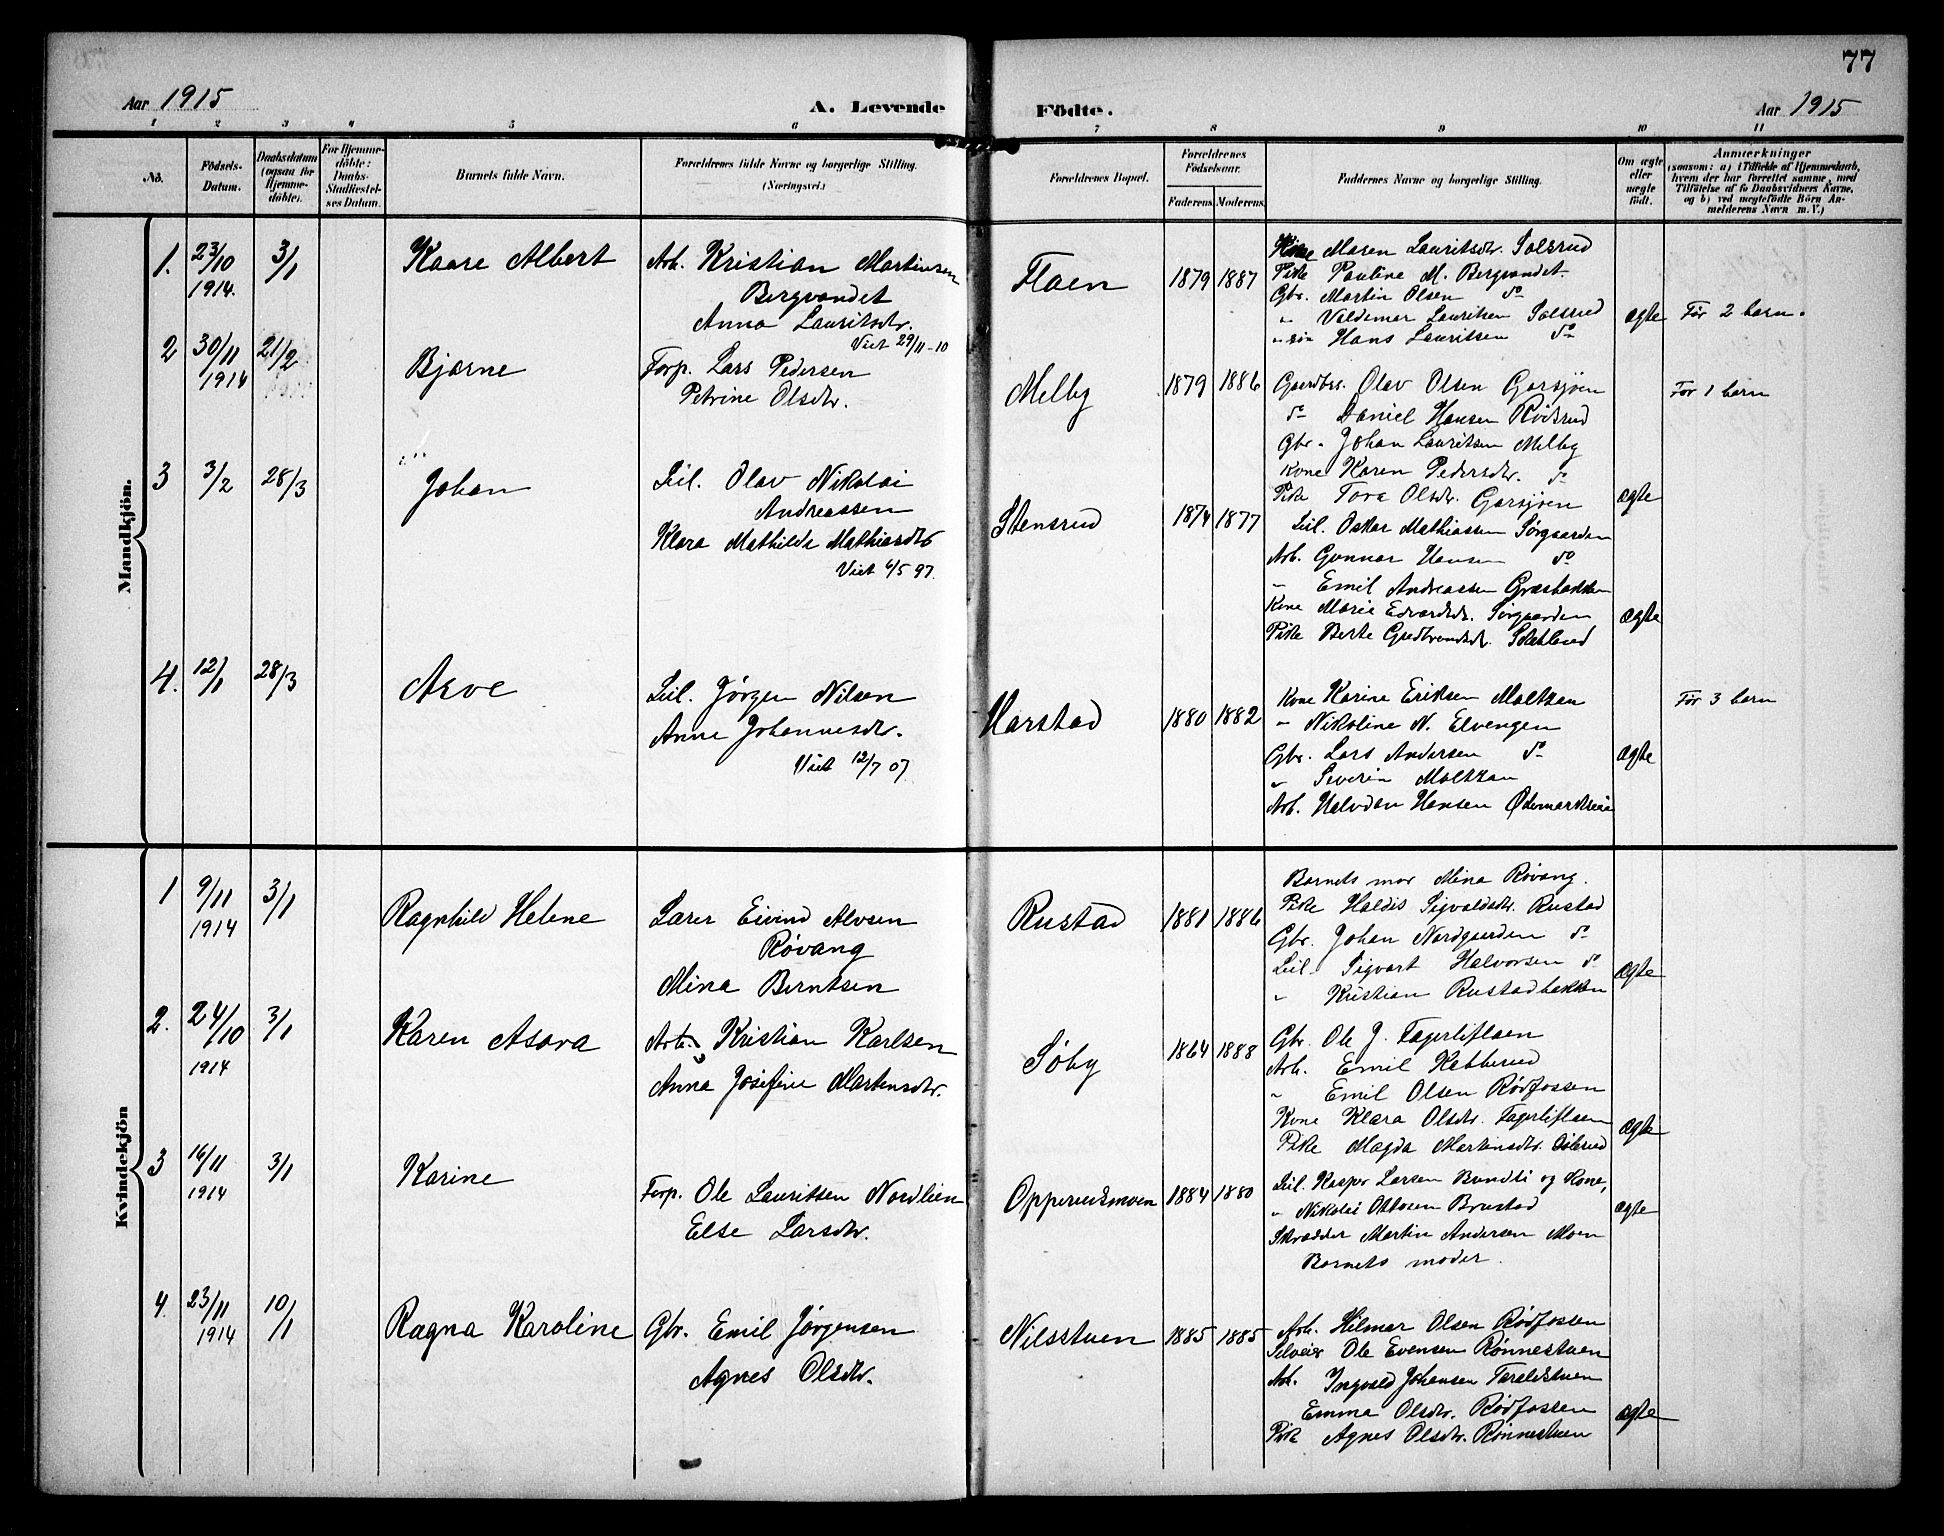 77
Aar 1915
A. Levende
Födte.
Aar 1915
1 2 3 4 5 6 7 8 9 10 11
No.
Födsels-Datum.
Daabsdatum (ogsaa for Hjemme-döbte).
For Hjemme-döbte: Daabs-Stadfæstel-ses Datum.
Barnets fulde Navn.
Forældrenes fulde Navne og borgerlige Stilling.
(Næringsvei.)
Forældrenes Bopæl.
Forældrenes Födselsaar.
Faderens. Moderens.
Faddernes Navne og borgerlige Stilling.
Om ægte eller uægte födt.
Anmærkninger
(saasom: a) i Tilfælde af Hjemmedaab, hvem der har forrettet samme, med Tilföielse af to Daabsvidners Navne, og b) ved uægtefödte Börn An-melderens Navn m. V.)
Mandkjön.
1. 23/10 1914. 3/1
Kaare Albert
Arb. Kristian Martinsen
Bergvandet
Anna Lauritsdtr.
Viet 29/11-10
Flaen
1879 1887
Kone Maren Lauritsdtr. Solsrud
Pike Pauline M. Bergvandet
Gbr. Martin Olsen do
" Valdemar Lauritsen Solsrud
" søn Hans Lauritsen do
ægte
Før 2 barn.
2 30/11 1914 21/2
Bjarne
Forp. Lars Pedersen
Petrine Olsdtr.
Melby
1879 1886
Gaardbr. Olav Olsen Garsjøen
do Daniel Hansen Rødsrud
Gbr. Johan Lauritsen Melby
Kone Karen Pedersdtr. do
Pike Tora Olsdtr. Garsjøen
ægte
Før 1 barn
3 3/2 28/3
Johan
Leil. Olav Nikolai
Andreassen
Klara Mathilde Mathiasdtr
Viet 6/5 97.
Stensrud
1874 1877
Leil. Oskar Mathiassen Sørgaarden
Arb. Gunnar Hansen do
" Emil Andreassen Græsbakken
Kone Marie Edvardsdtr. Sørgaarden
Pike Berte Gudbrandsdtr.
ægte
4. 12/1 28/3
Arve
Leil. Jørgen Nilsen
Anne Johannesdtr.
Viet 12/7 07
Harstad
1880 1882
Kone Karine Eriksen Moltzau
" Nikoline N. Elvengen
Gbr. Lars Andersen do
" Severin Moltzau
Arb. Halvdan Hansen
ægte
Før 3 barn
Kvindekjön
1 9/11 1914 3/1
Ragnhild Helene
Lærer Eivind Alvsen
Røvang
Mina Berntsen
Rustad
1881 1886
Barnets mor Mina Røvang.
Pike Haldis Sigvaldsdtr. Rustad
Gbr. Johan Nordgaarden do
Leil. Sigvart Halvorsen do
" Kristian Rustadbakken
ægte
2. 24/10 1914 3/1
Karen Asora
Arb. Kristian Karlsen
Anna Josefine Martinsdtr.
Søby
1864 1888
Gbr. Ole J. Fagerliflaen
Arb. Emil Kabberud
" Emil Olsen Rødfossen
Kone Klara Olsdtr. Fagerliflaen
Pike Magda Martinsdtr.
ægte
3 16/11 1914 3/1
Karine
Forp. Ole Lauritsen Nordlien
Else Larsdtr.
Opperudsmoen
1884 1880
Leil. Kasper Larsen Bundli og Kone,
" Nikolai Ottosen Brustad
Skrædder Martin Andersen Moen
Barnets moder.
ægte
4. 23/11 1914 10/1
Ragna Karoline
Gbr. Emil Jørgensen
Agnes Olsdtr.
Nilsstuen
1885 1885
Arb. Hilmar Olsen Rødfossen
Selveier Ole Evensen Rønnestuen
Arb. Ingvald Johansen Taraldstuen
Emma Olsdtr. Rødfossen
Pike Agnes Olsdtr. Rønnestuen
ægte